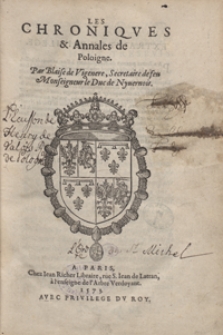 LES
CHRONIQVES
& Annales de
Poloigne.
Par Blaise de Vigenere, Secretaire de feu
Monseigneur le Duc de Nyuernois.
de
A PARIS,
Chez Iean Richer Libraire, rue S. Iean de Latran,
à l'enseigne de l'Arbre Verdoyant.
1573.
AVEC PRIVILEGE DV ROY.